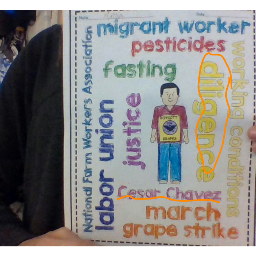 Name:
Date:
National Farm Workers Association
migrant worker
pesticides
fasting
diligence
working conditions
labor union
justice
Cesar Chavez
march
grape strike